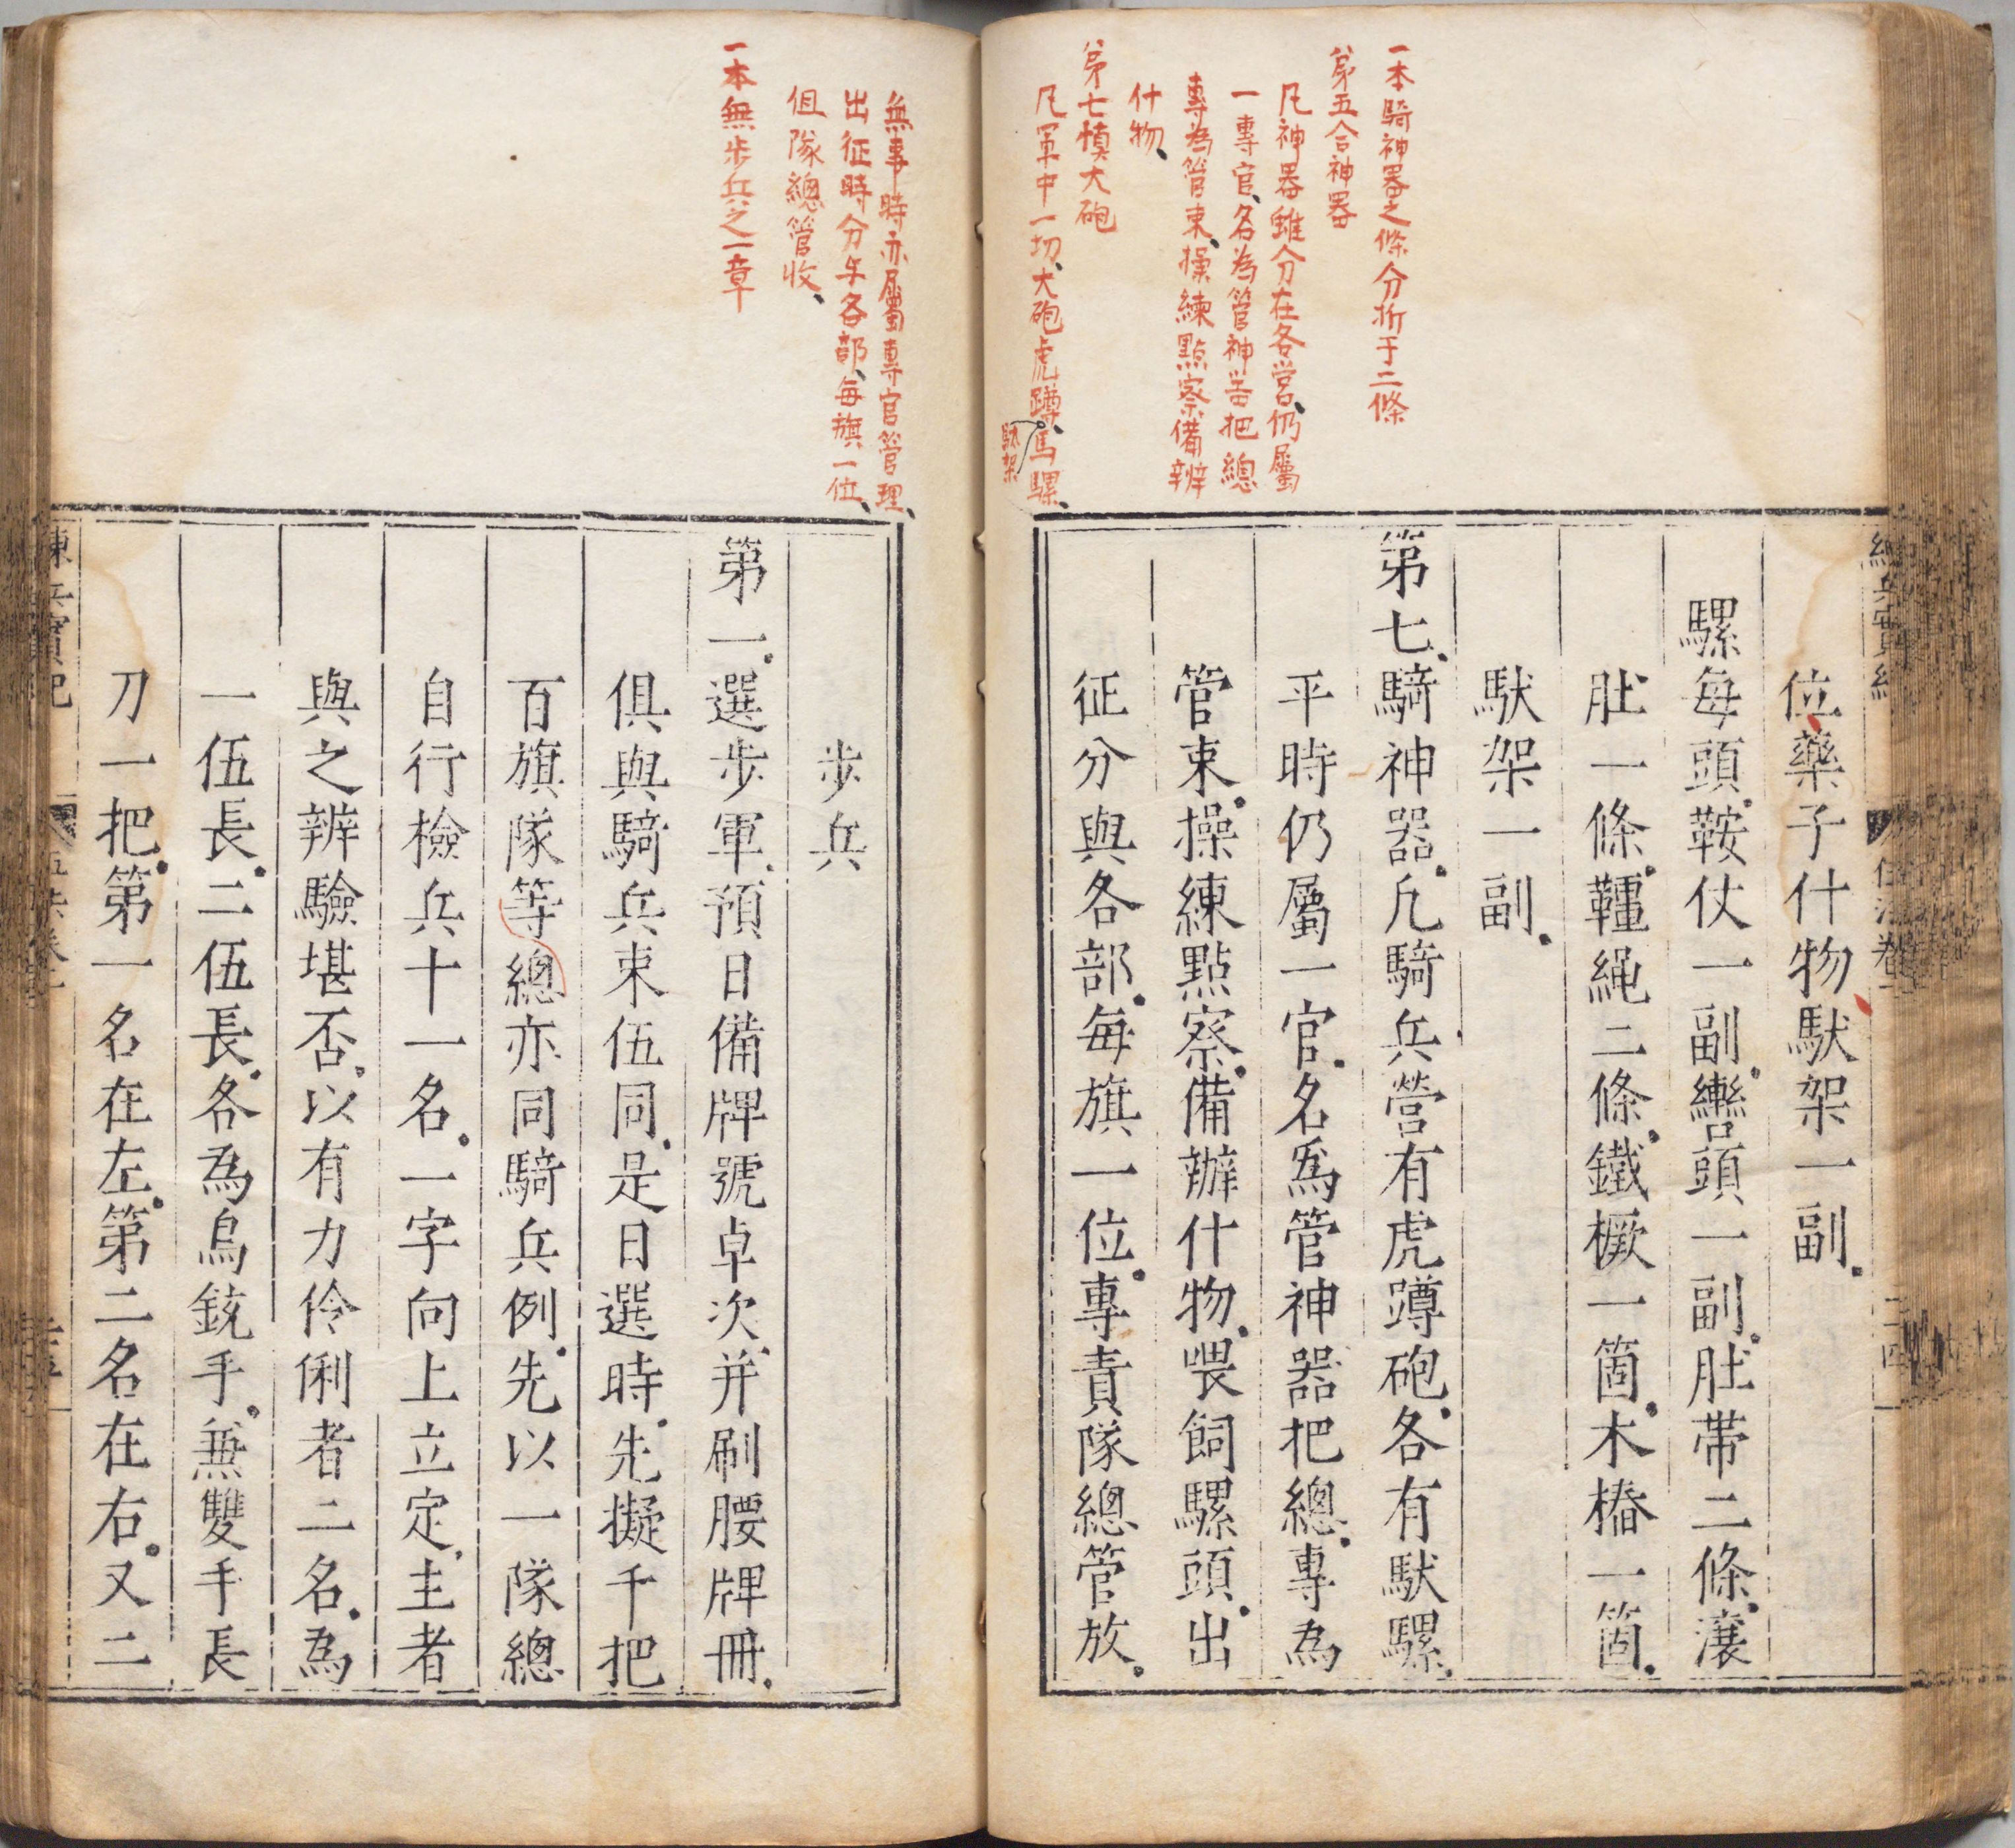 一本騎神器之條分拆于二條
第五合神器
凡神器雖分在各営、仍屬
一專官、名為管神器把總
專為管束、操練點察備辨
什物、
第七慎大砲
凡軍中一切、大砲虎蹲、馬騾、
馱架
位藥子什物馱架一副
騾每頭鞍仗一副轡頭一副肚帶二條瀼
肚一條韁繩二條鐵橛一箇木樁一箇
馱架一副
第七騎神器凢騎兵營有虎蹲砲各有馱騾
平時仍屬一官名爲管神器把總專為
管束操練點察備辦什物喂飼騾頭出
征分與各部每旗一位專責隊總管放
無事時亦屬專官管理、
出征時分与各部、每旗一位、
伹隊總管收、
一本無步兵之一章
步兵
第一選步軍預日備牌號卓次并刷腰牌冊
俱與騎兵束伍同是日選時先擬千把
百旗隊等總亦同騎兵例先以一隊總
自行檢兵十一名一字向上立定主者
與之辨驗堪否以有力伶俐者二名為
一伍長二伍長各為鳥銃手兼雙手長
刀一把第一名在左第二名在右又二